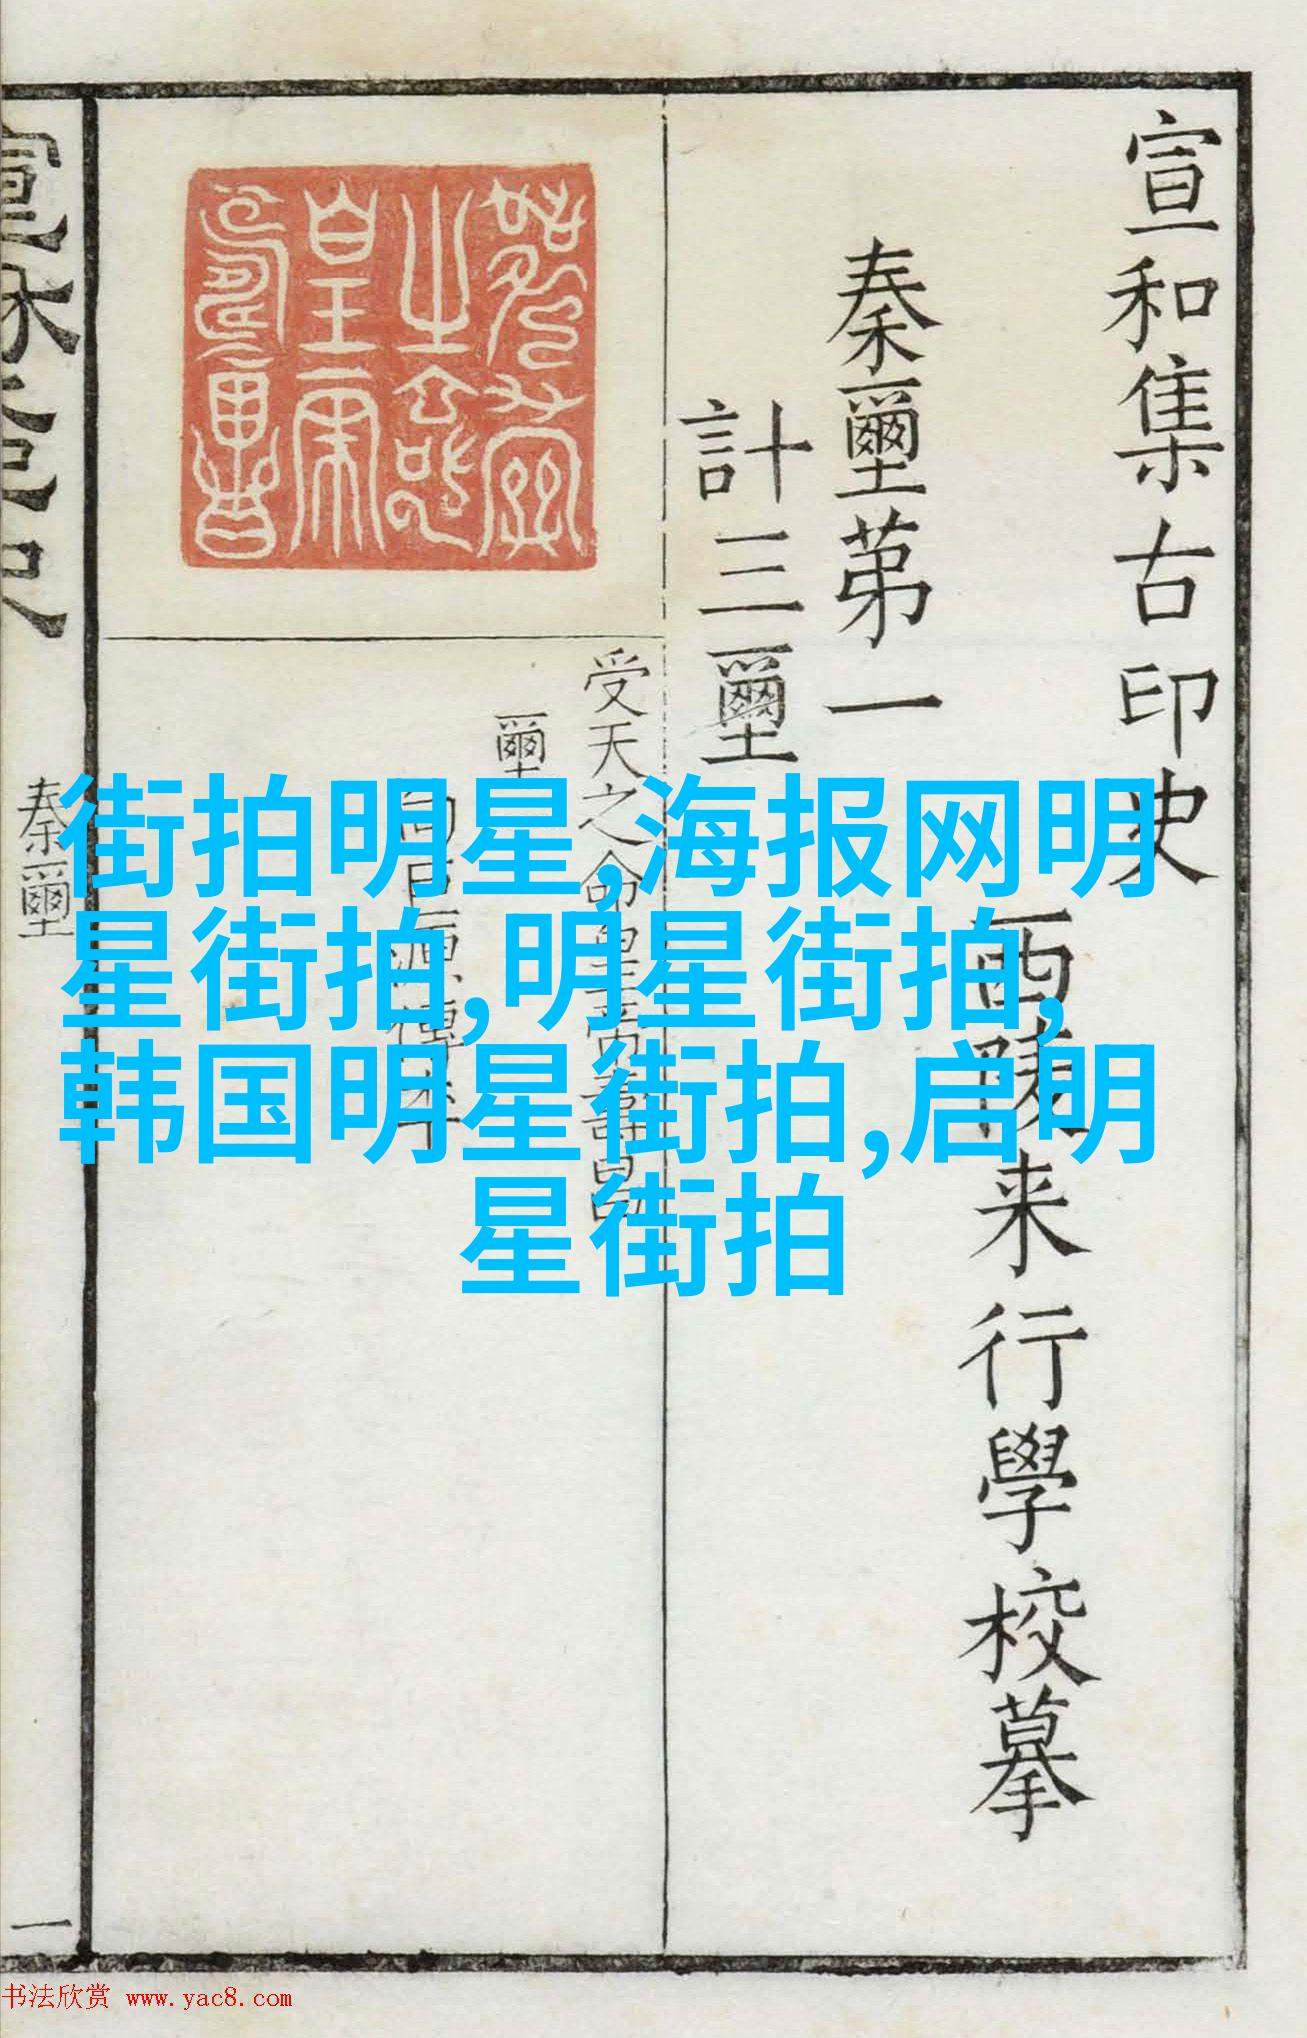 宣和集古印史
西陵来行學校摹
秦璽第一
計三璽
受天之命皇帝壽昌
璽
向巨源傳本
秦璽
一
街拍明星,海报网明
星街拍,明星街拍,
韩国明星街拍,启明
星街拍
书法欣赏 www.yac8.com